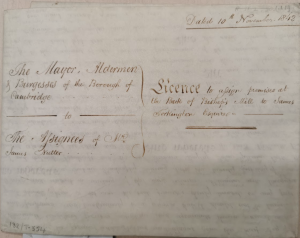 Dated 10th November 1843
The Mayor, Aldermen
& Burgesses of the Borough of
Cambridge
to
The Assignees of Mr
James Butler
Licence to assign premises at
the Back of Bishop's Mill to James
Esquire